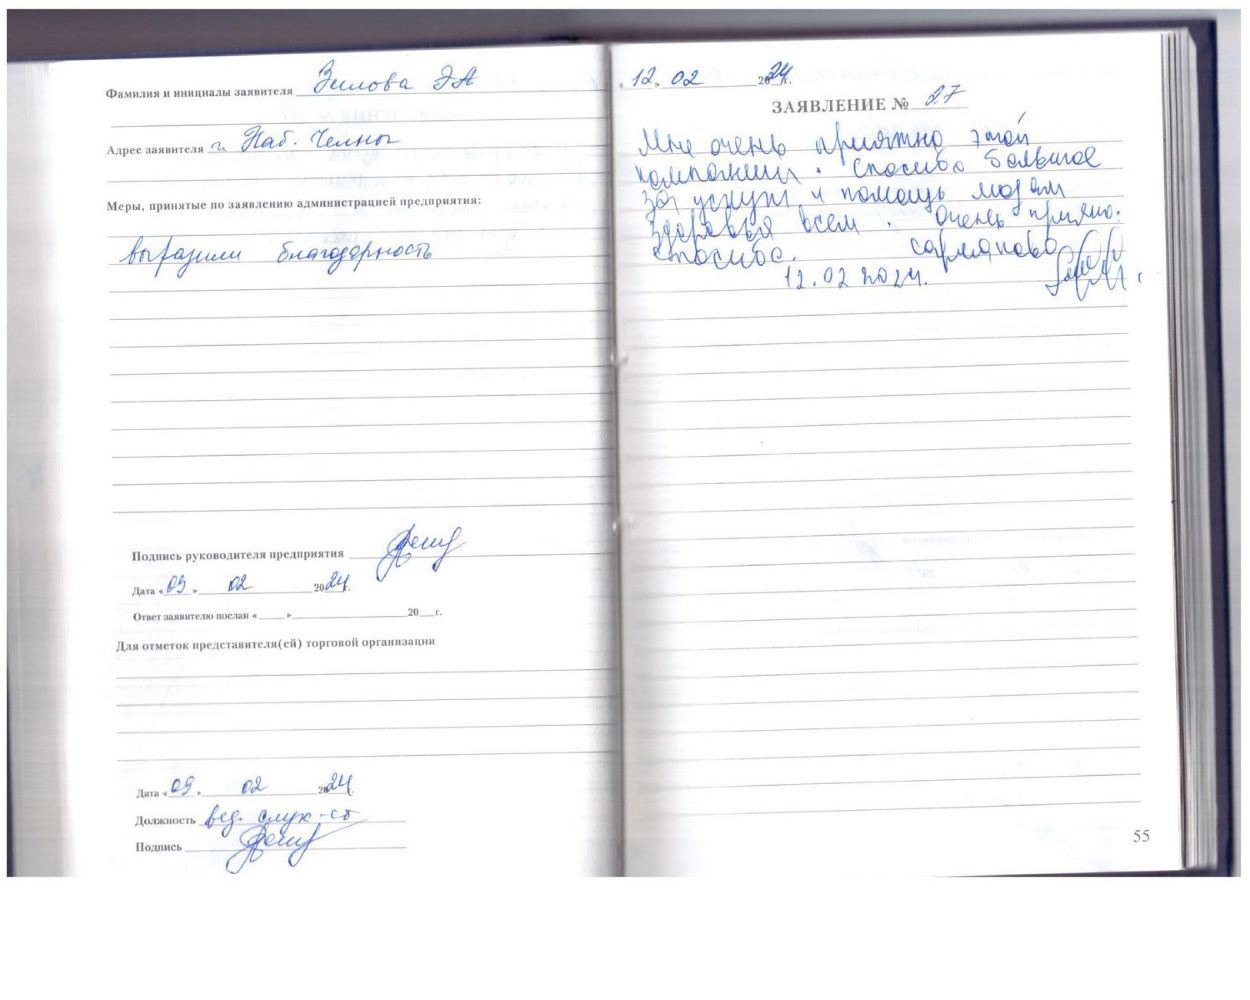 Фамилия и инициалы заявителя Зилова ЭА
Адрес заявителя г. Наб. Челны
Меры, принятые по заявлению администрацией предприятия:
выразили благодарность
Подпись руководителя предприятия
Дата «09» 02 2024г.
Ответ заявителю послан «____»____________20___г.
Для отметок представителя(ей) торговой организации
Дата «09» 02 2024г.
Должность вед. слух-ст
Подпись
«12» 02 2024г.
ЗАЯВЛЕНИЕ № 27
Мне очень приятно этой
компании. Спасибо большое
за услуги и помощь людям
здоровья всем. Очень приятно.
спасибо.
12.02 2024.
55